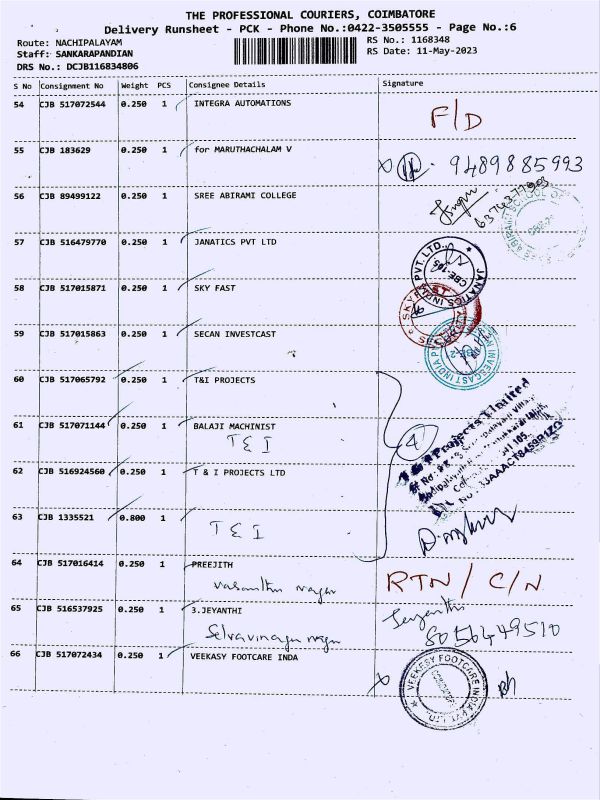 THE PROFESSIONAL COURIERS, COIMBATORE
Delivery Runsheet - PCK - Phone No.:0422-3505555 - Page No.:6
Route: NACHIPALAYAM
RS No.: 1168348
Staff: SANKARAPANDIAN
RS Date: 11-May-2023
DRS No.: DCJB116834806
S No Consignment No Weight PCS Consignee Details Signature
54 CJB 517072544 0.250 1 INTEGRA AUTOMATIONS
F/D
55 CJB 183629 0.250 1 for MARUTHACHALAM V
9489885993
56 CJB 89499122 0.250 1 SREE ABIRAMI COLLEGE
57 CJB 516479770 0.250 1 JANATICS PVT LTD
JANATICS INDIA PVT. LTD.,
CBE-105
58 CJB 517015871 0.250 1 SKY FAST
59 CJB 517015863 0.250 1 SECAN INVESTCAST
60 CJB 517065792 0.250 1 T&I PROJECTS
61 CJB 517071144 0.250 1 BALAJI MACHINIST
T & I
4
T & I Projects Limited
62 CJB 516924560 0.250 1 T & I PROJECTS LTD
63 CJB 1335521 0.800 1
T & I
64 CJB 517016414 0.250 1 PREEJITH
Vasantha nagar
RTN / C/N
65 CJB 516537925 0.250 1 3.JEYANTHI
Selvavinayagar nagar
Jeyanthi
8056449510
66 CJB 517072434 0.250 1 VEEKASY FOOTCARE INDA
VEEKASY FOOTCARE INDIA PVT. LTD.